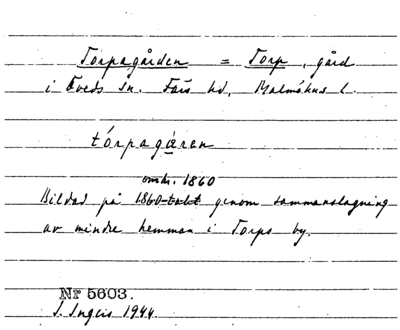 Torpagården = Torp, gård
i Öveds sn. Färs hd, Malmöhus l.
tórpagæ̀ren
omkr. 1860
Bildad på 1860-talet genom sammanslagning
av mindre hemman i Torps by.
Nr 5603.
J. Ingers 1944.